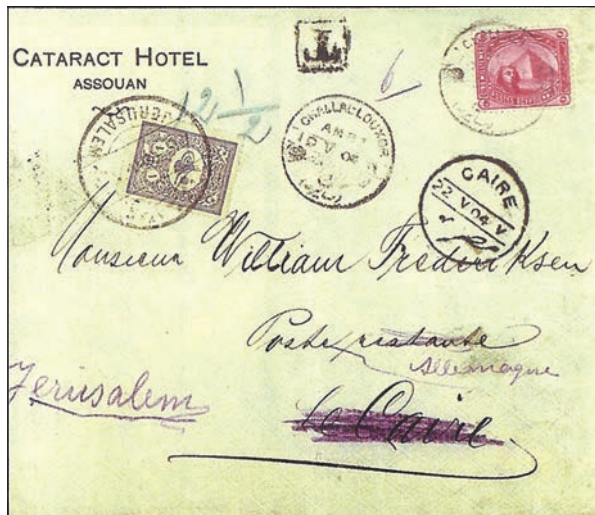 CATARACT HOTEL
ASSOUAN
T
6
12 1/2
JERUSALEM
CHALLAL-LOUXOR
AMB
V 04
CAIRE
22 V 04 V
Monsieur William Frederiksen
Poste restante
Allemagne
Jerusalem
le Caire